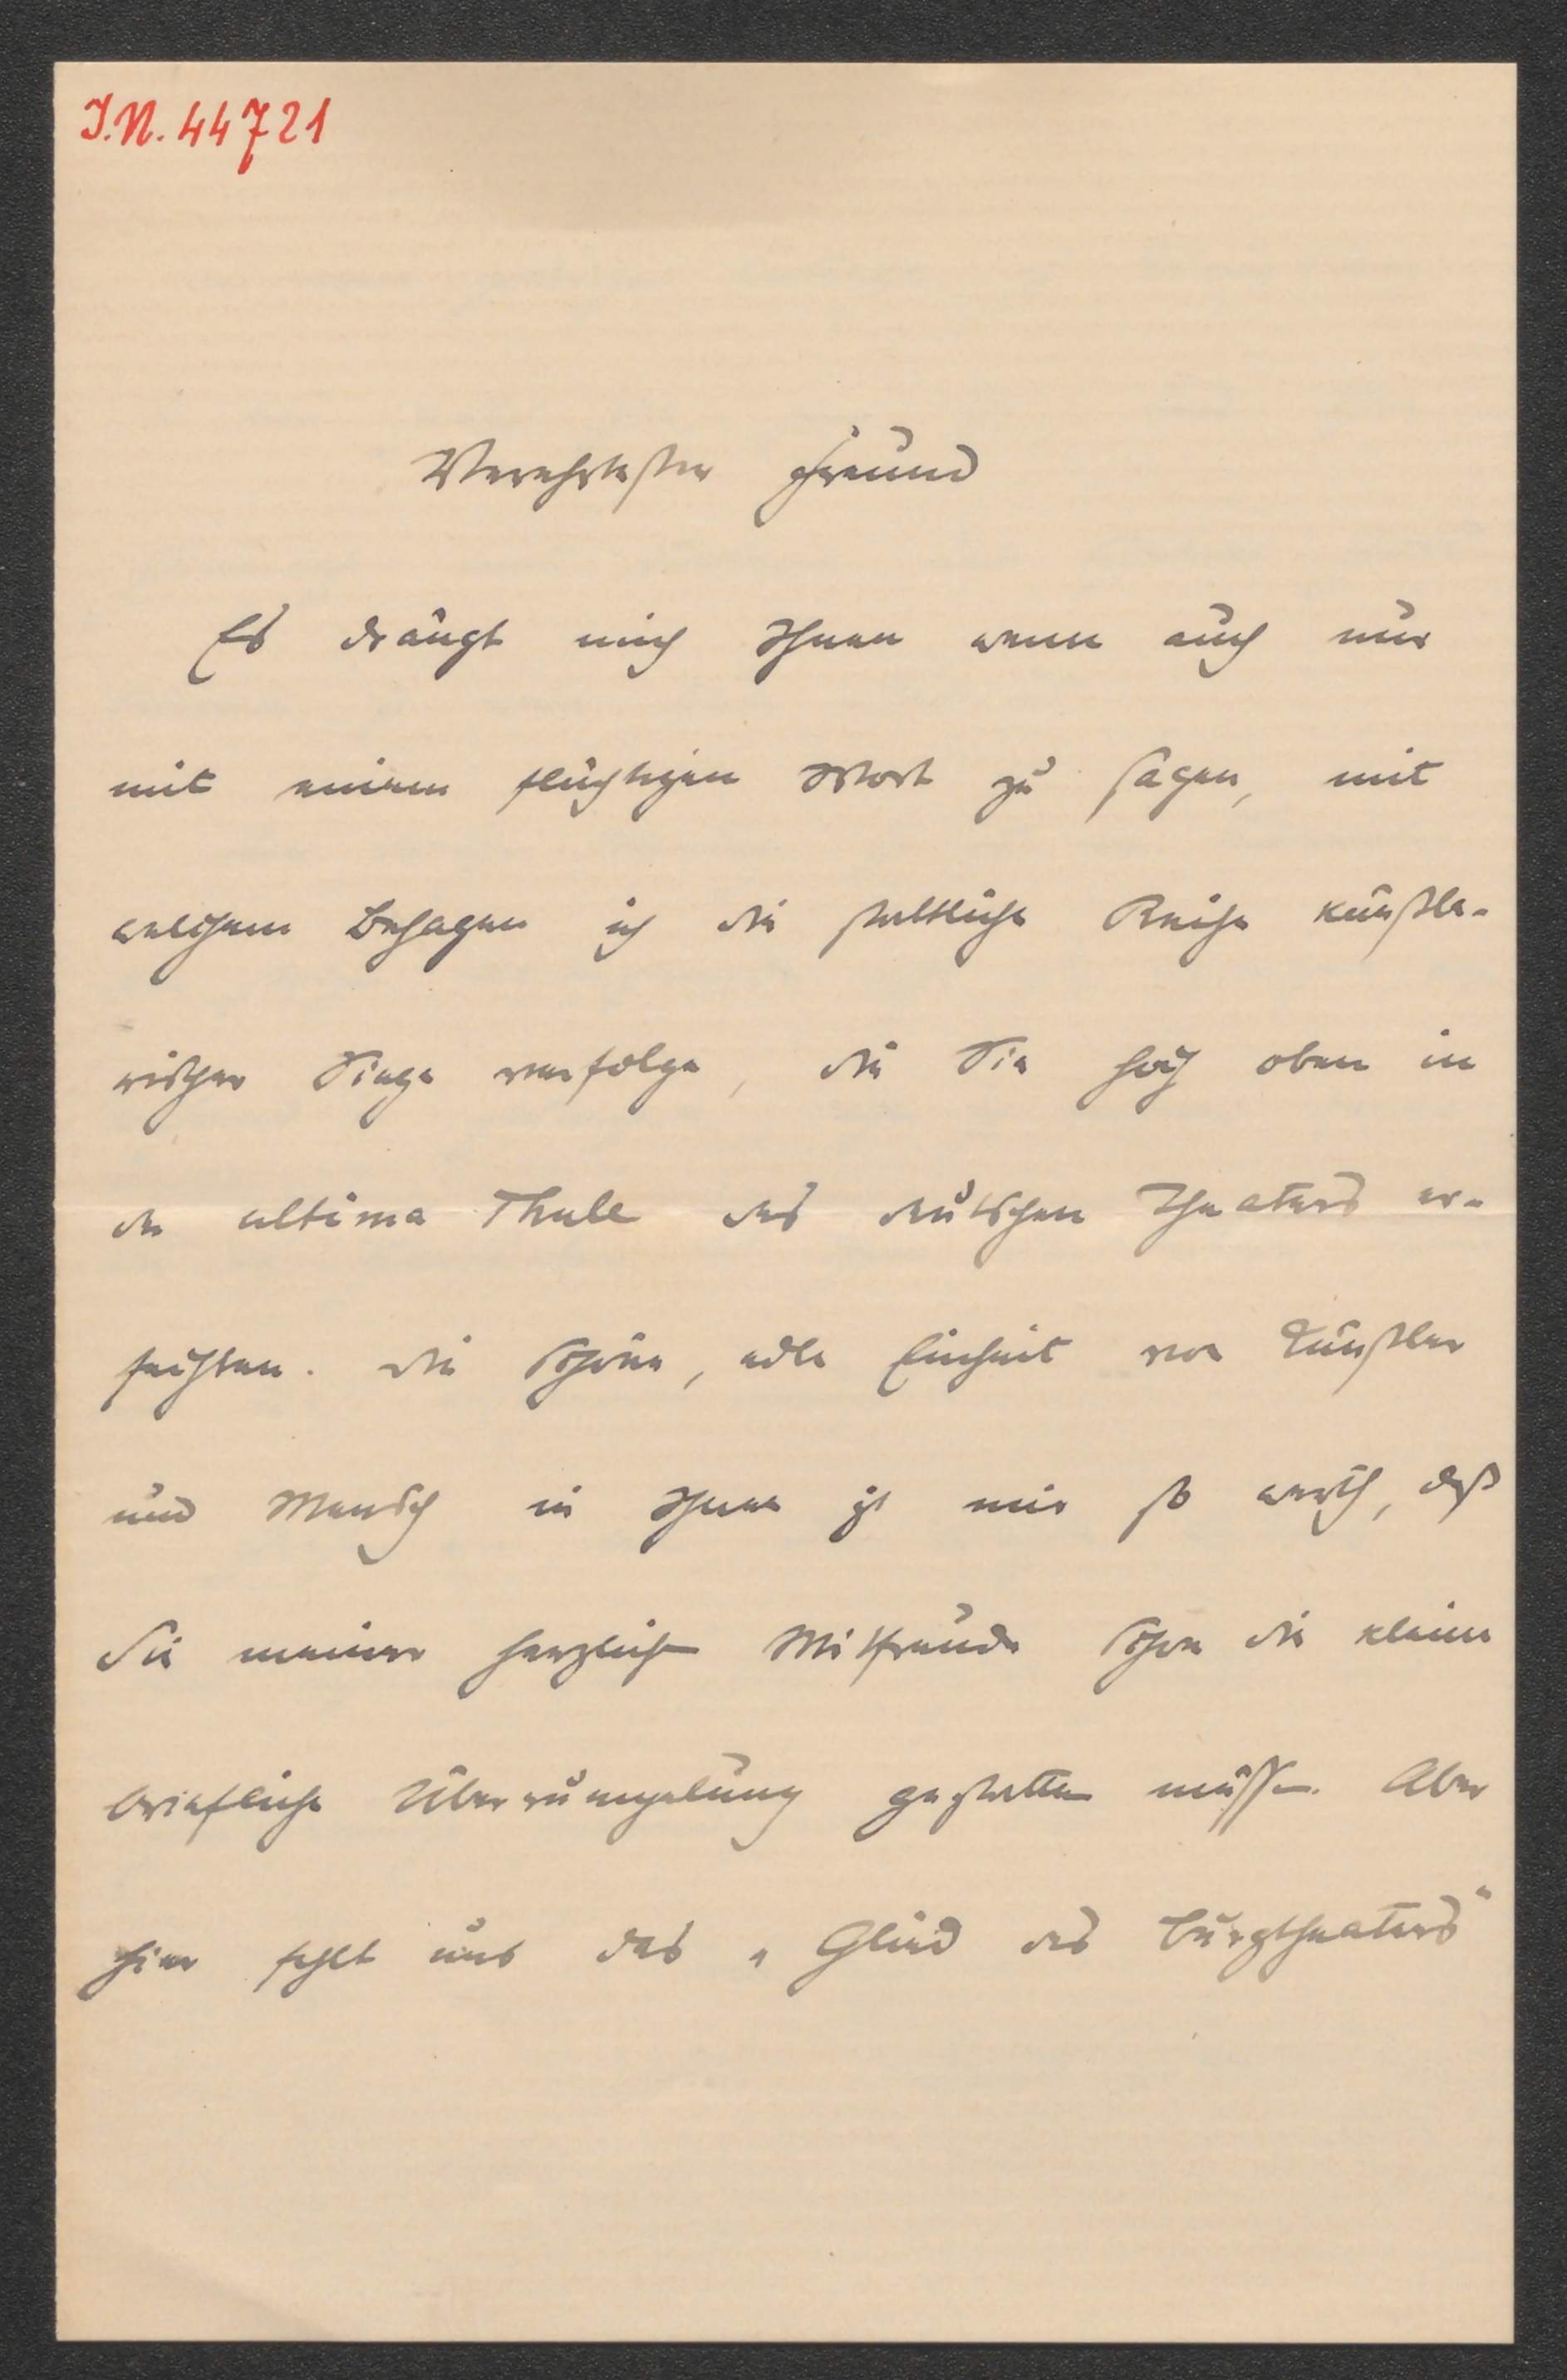 I.N. 44721
Verehrtester Freund
Es drängt mich Ihnen wenn auch nur
mit einem flüchtigen Wort zu sagen, mit
welchem Behagen ich die stattliche Reihe künstle-
rischer Siege verfolge, die Sie hoch oben in
der ultima Thule des deutschen Theaters er-
fechten. Die schöne, edle Einheit von Künstler
und Mensch in Ihnen ist mir so werth, daß
Sie meiner herzlichen Mitfreude schon die kleine
briefliche Überrumpelung gestatten müssen. Aber
hier fehlt uns das „Glied des Burgtheaters“